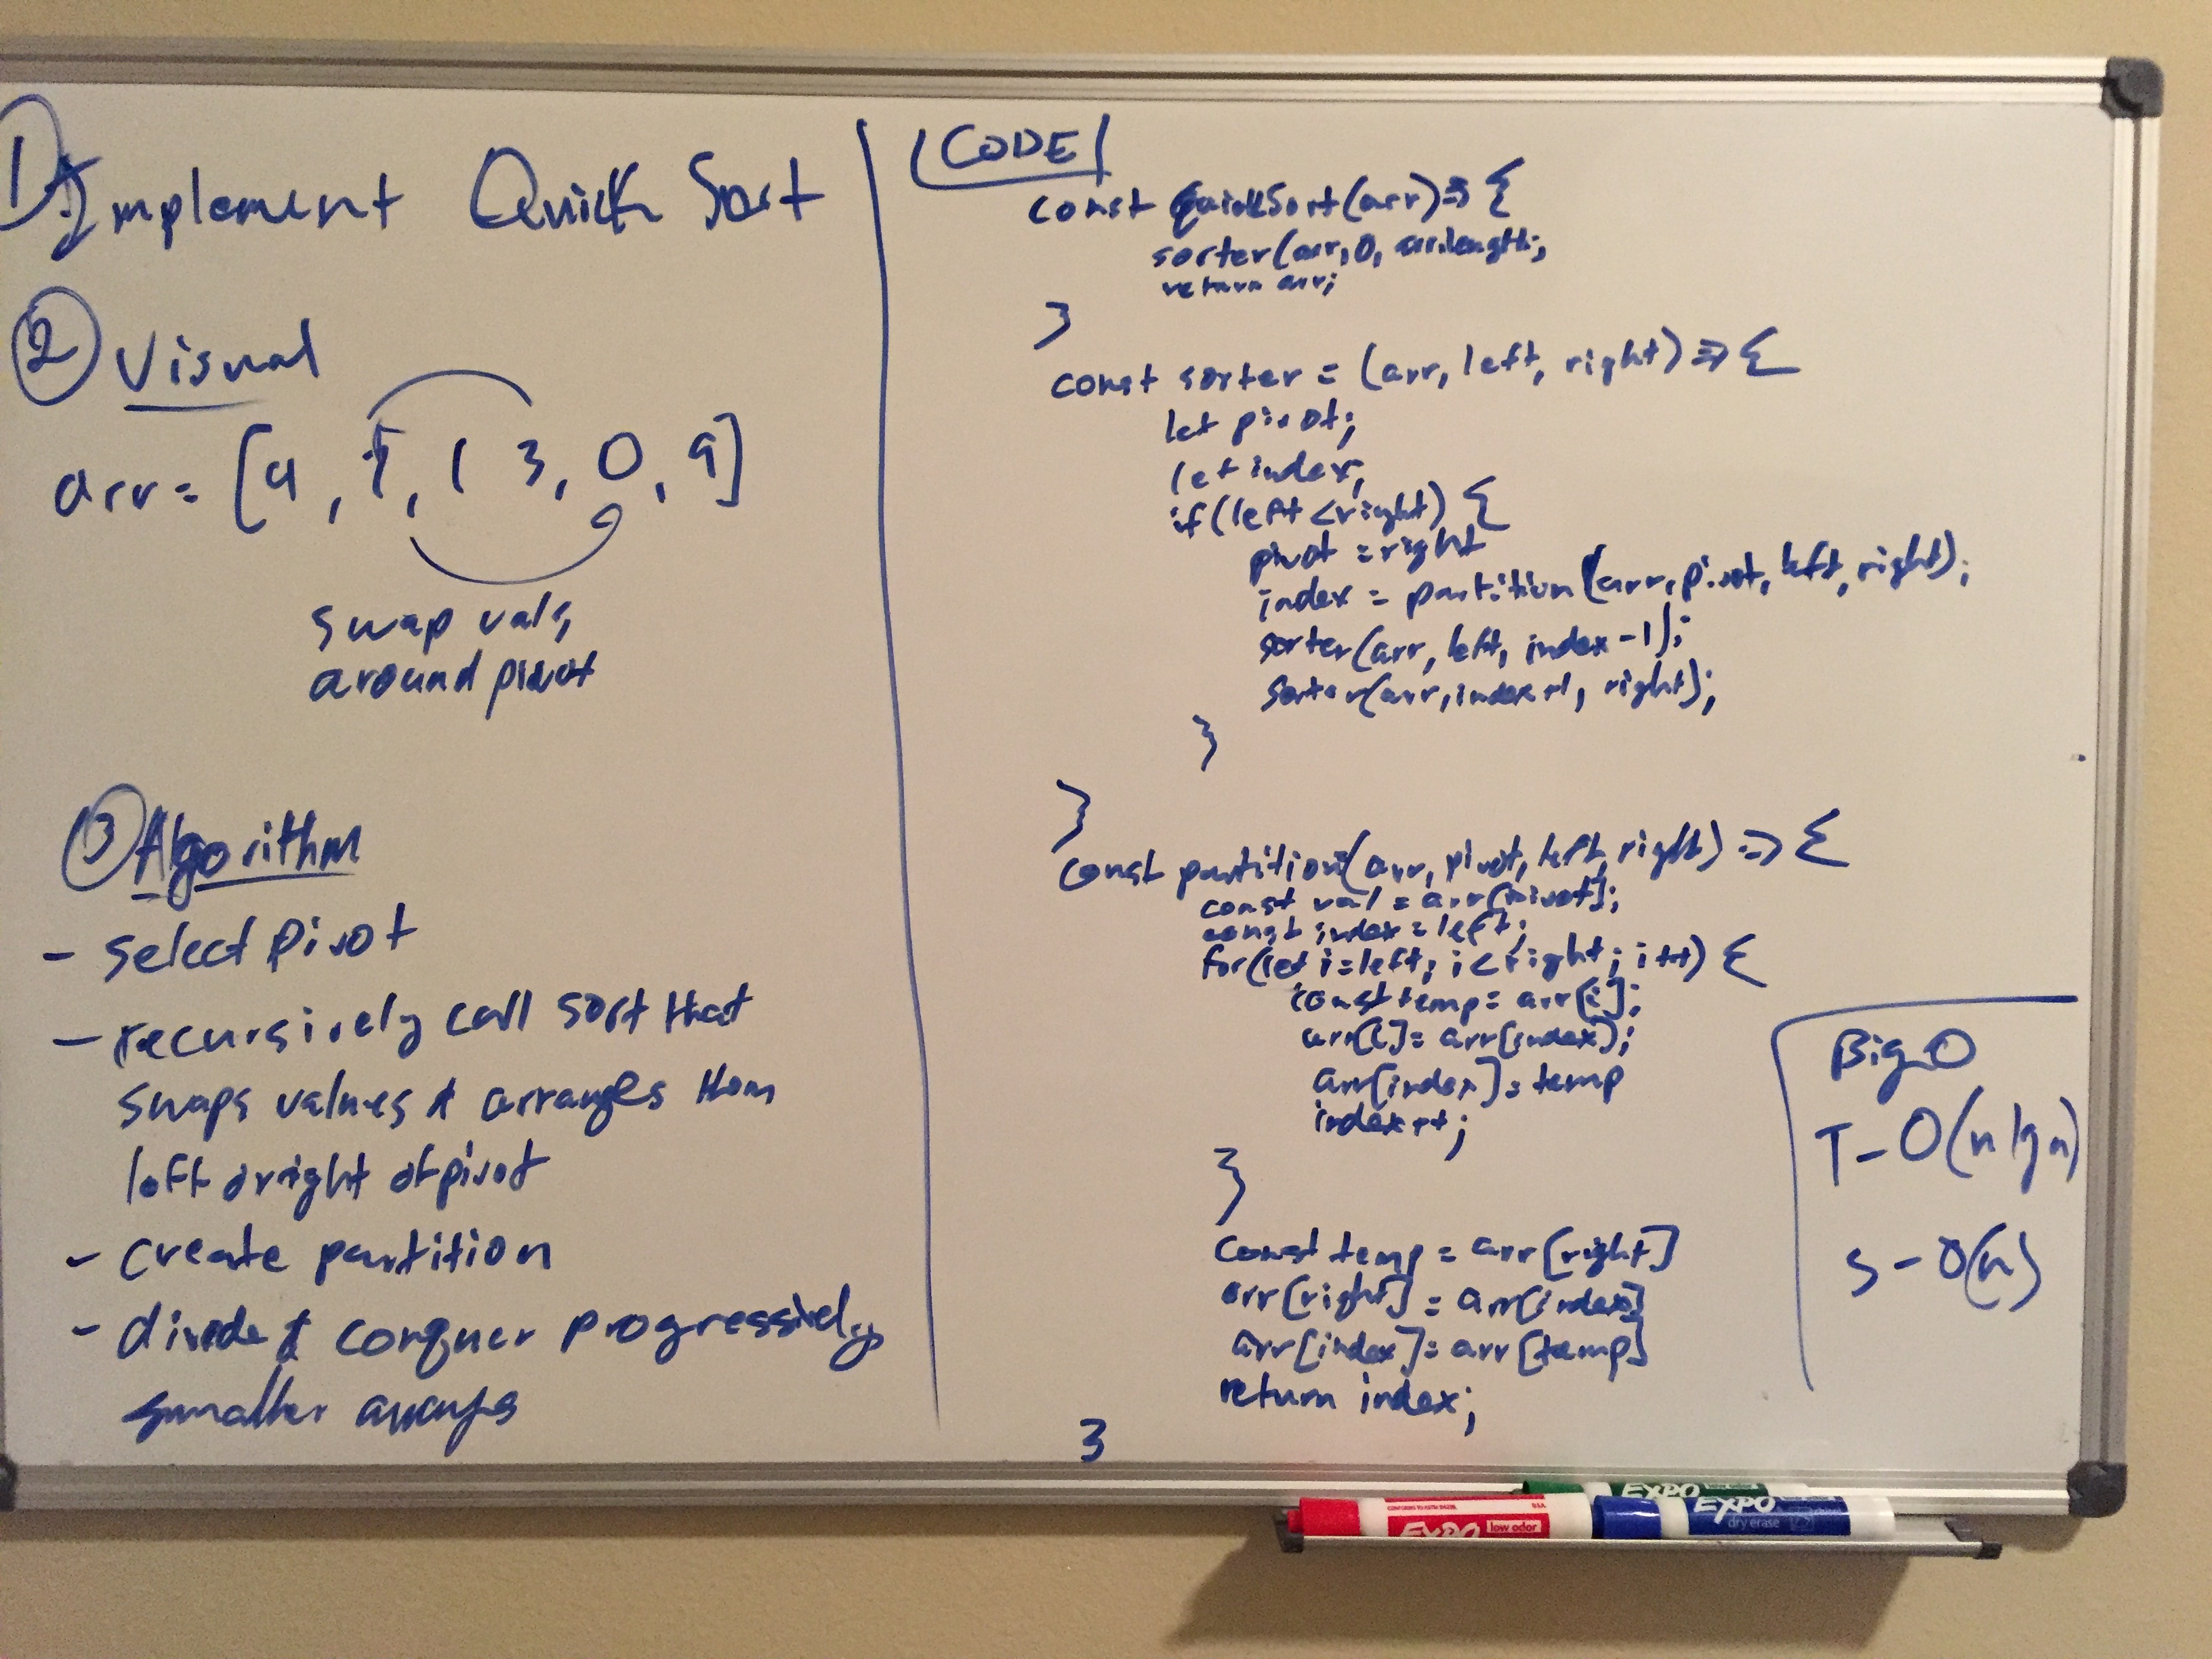 1) Implement Quick Sort
2 Visual
arr = [4, 5, 1 3, 0, 9]
swap vals,
around pivot
3 Algorithm
- select pivot
- recursively call sort that
swaps values & arranges them
left or right of pivot
- create partition
- divide & conquer progressively
smaller arrays
CODE
const quickSort(arr)=> {
sorter(arr, 0, arr.length;
return arr;
}
const sorter = (arr, left, right) => {
let pivot;
let index;
if(left < right) {
pivot = right
index = partition(arr, pivot, left, right);
sorter(arr, left, index -1);
sorter(arr, index+1, right);
}
}
const partition(arr, pivot, left, right) => {
const val = arr[pivot];
const index = left;
for(let i=left; i < right; i++) {
const temp = arr[i];
arr[i] = arr[index];
arr[index] = temp
index++;
}
const temp = arr[right]
arr[right] = arr[index]
arr[index] = arr[temp]
return index;
}
Big O
T - O(n lg n)
S - O(n)
EXPO
EXPO
low odor
EXPO
dry erase